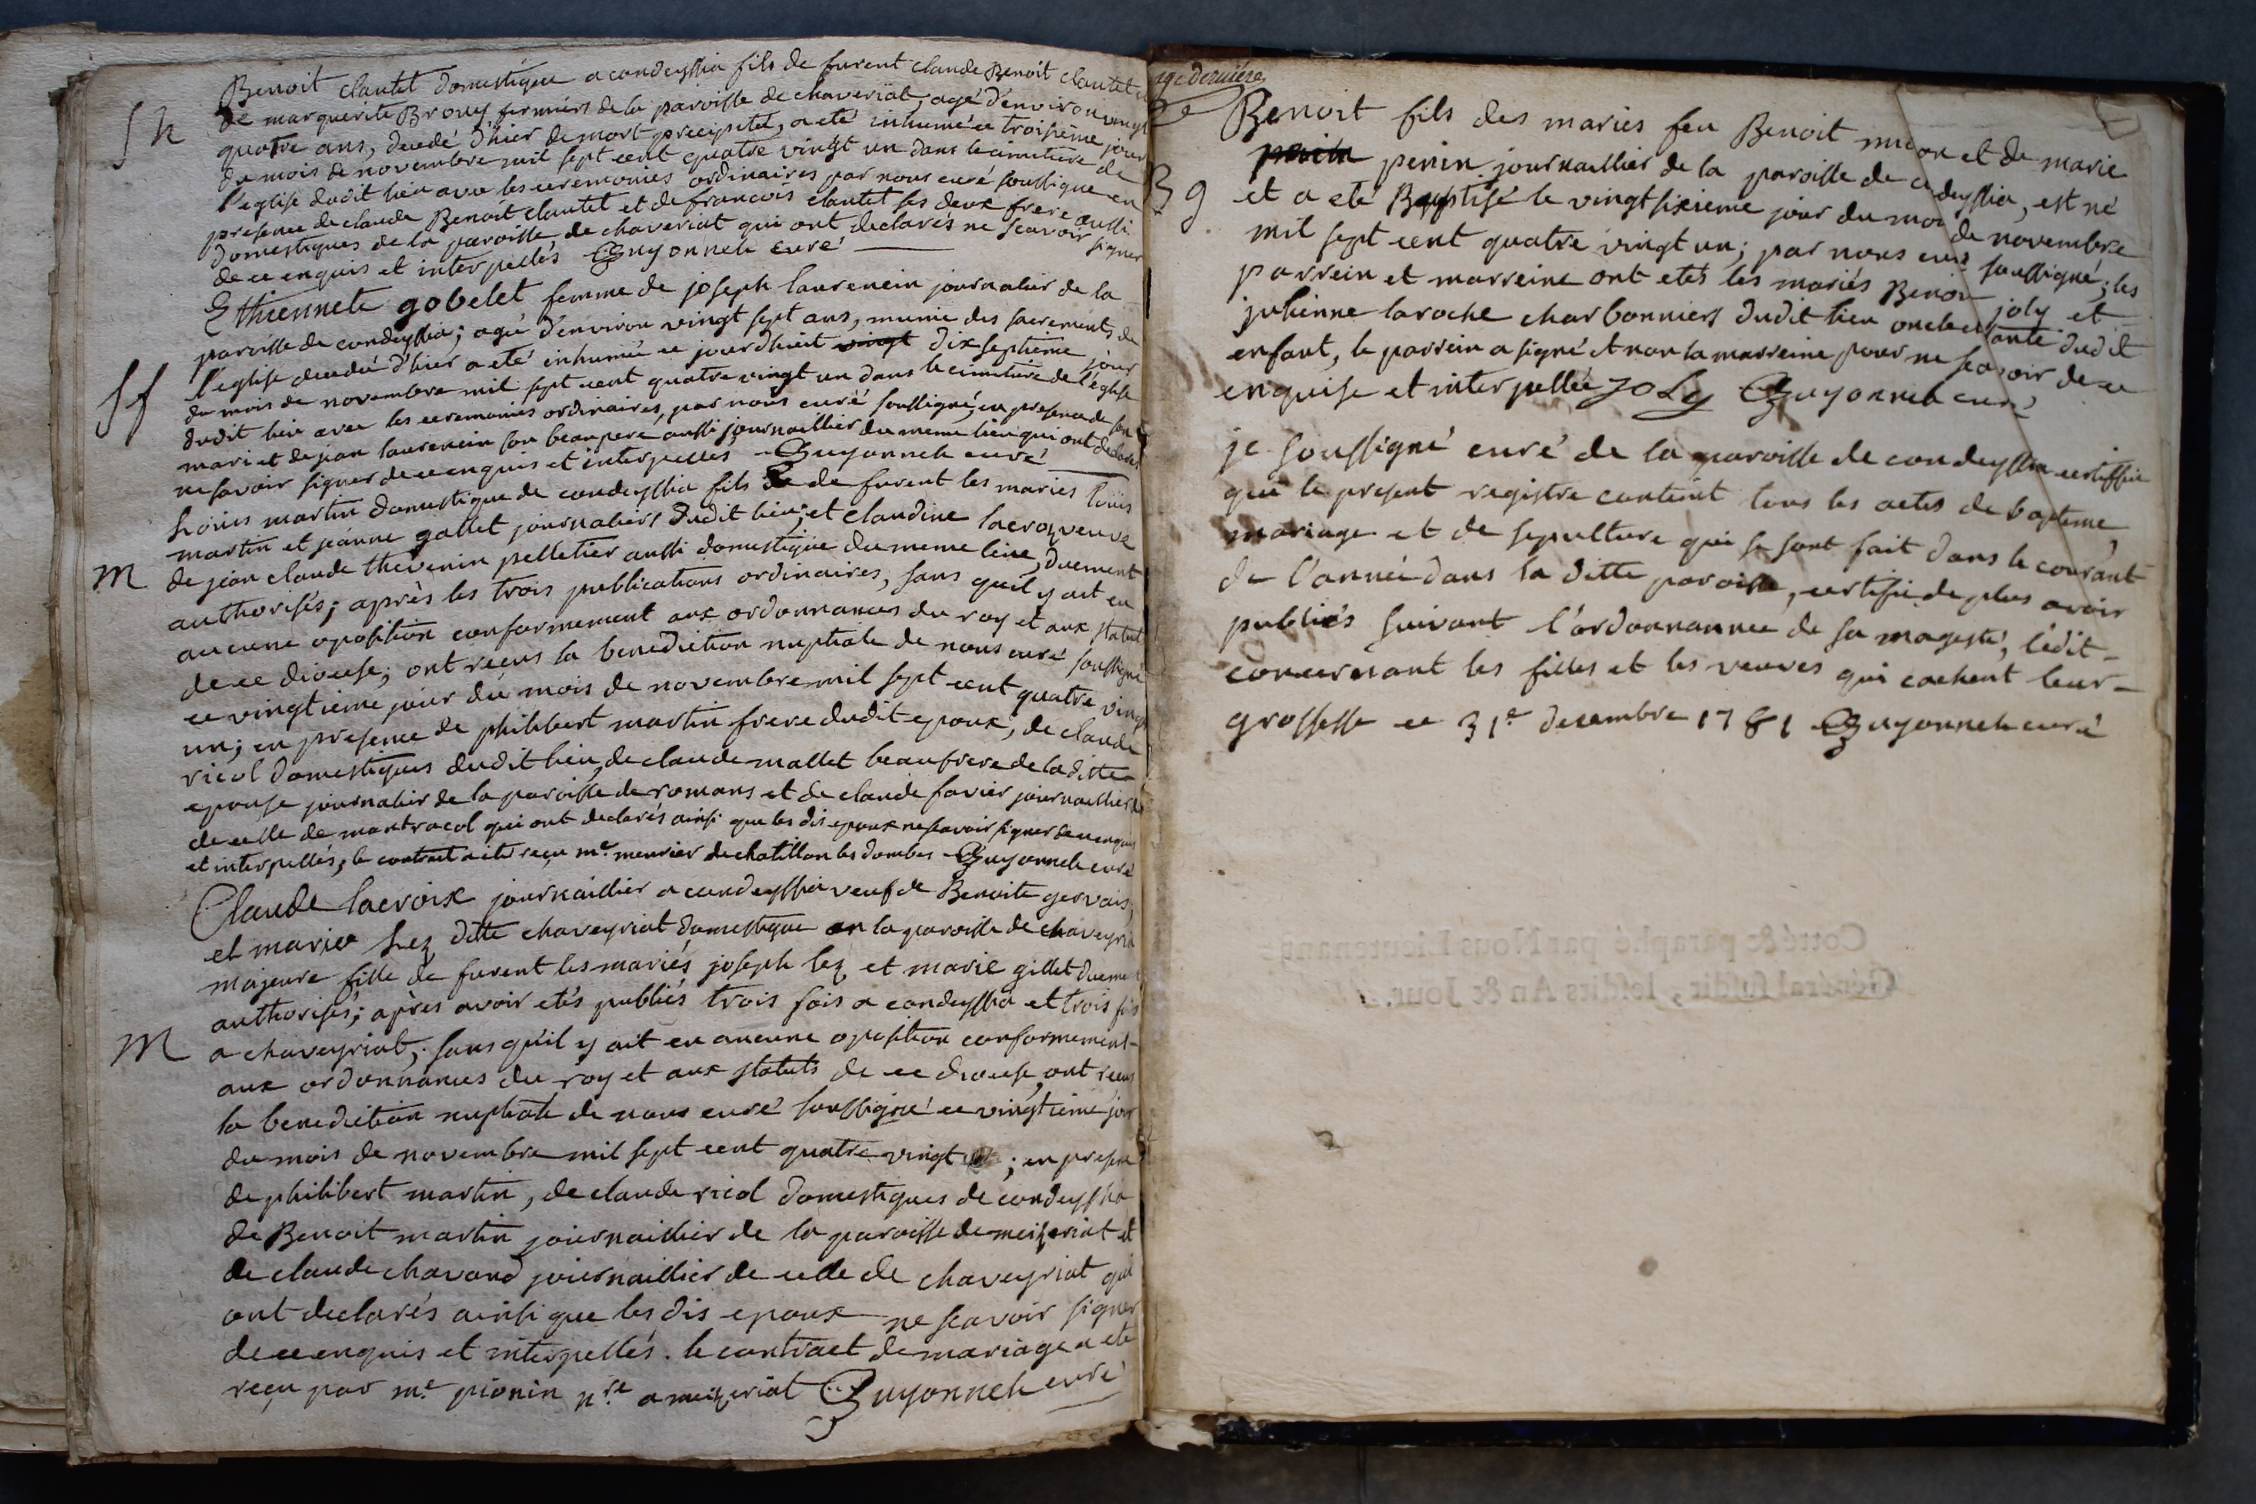 Benoit clautet domestique a condeyssia fils de furent claude Benoit clautet
de marguerite Brouy fermiers de la paroisse de chaveriat, agé d'environ vingt
quatre ans, decedé d'hier de mort precipitée, a eté inhumé ce troisieme jour
du mois de novembre mil sept cent quatre vingt un dans le cimitiere de
l'eglise dudit lieu avec les ceremonies ordinaires par nous curé soussigné en
presence de claude Benoit clautet et de francois clautet ses deux frere aussi
domestiques de la paroisse de chaveriat qui ont declarés ne scavoir signer
de ce enquis et interpellés Guyonnet curé
S h
Ethiennete gobelet femme de joseph laurencin journalier de la
paroisse de condeyssia; agée d'environ vingt sept ans, munie des sacrements de
l'eglise decedée d'hier a eté inhumée ce jourdhuit vingt dix septieme jour
du mois de novembre mil sept cent quatre vingt un dans le cimitiere de l'eglise
dudit lieu avec les ceremonies ordinaires, par nous curé soussigné, en presence de son
mari et de jean laurencin son beaupere aussi journaillier du meme lieu qui ont declarés
ne savoir signer de ce enquis et interpellés Guyonnet curé
S f
Loüis martin domestique de condeyssia fils de de furent les mariés Loüis
martin et jeanne gallet journaliers dudit lieu; et claudine lacroy veuve
de jean claude thevenin pelletier aussi domestique du meme lieu, duement
authorisés; après les trois publications ordinaires, sans quil y ait eu
aucune oposition conformement aux ordonnances du roy et aux statut
de ce diocese; ont reçus la benediction nuptiale de nous curé soussigné
ce vingtieme jour du mois de novembre mil sept cent quatre vingt
un; en presence de philibert martin frere dudit epoux, de claude
ricol domestiques dudit lieu, de claude mallet beaufrere de laditte
epouse journalier de la paroisse de romans et de claude favier journaillier
de celle de montracol qui ont declarés ainsi que les dis epoux ne scavoir signer de ce enquis
et interpellés, le contract a eté reçu me meurier de chatillon les dombes Guyonnet curé
m
Claude lacroix journaillier a condeyssia veuf de Benoite gervais,
et marie Lez ditte chaveyriat domestique en la paroisse de chaveyria
majeure fille de furent les mariés joseph lez et marie gillet duement
authorisés; après avoir etés publiés trois fois a condeyssia et trois fois
a chaveyriat, sans qu'il y ait eu aucune oposition conformement
aux ordonnances du roy et aux statuts de ce diocese, ont reçus
la benediction nuptiale de nous curé soussigné ce vingtieme jour
du mois de novembre mil sept cent quatre vingt un; en presence
de philibert martin, de claude ricol domestiques de condeyssia
de Benoit martin journaillier de la paroisse de meizeriat et
de claude chavand journaillier de celle de chaveyriat qui
ont declarés ainsi que les dis epoux ne scavoir signer
de ce enquis et interpellés. le contract de mariage a eté
reçu par me pionin nre a meizeriat Guyonnet curé
m
page derniére
Benoit fils des mariés feu Benoit et de marie
perin journaillier de la paroisse de condeyssia, est né
et a eté Baptisé le vingt sixieme jour du mois de novembre
mil sept cent quatre vingt un; par nous curé soussigné; les
parrein et marreine ont etés les mariés Benoit joly et
julienne laroche charbonniers dudit lieu oncle et tante dudit
enfant, le parrein a signé et non la marreine pour ne scavoir de ce
enquise et interpellée JoLy Guyonnet curé
B g
je soussigné curé de la paroisse de condeyssia certiffie
que le present registre contient tous les actes de bapteme,
mariage et de sepulture qui se sont fait dans le courant
de l'année dans la ditte paroisse, certifie de plus avoir
publiés suivant l'ordonnannce de sa magesté, l'edit
concernant les filles et les veuves qui cachent leur
grossesse ce 31e decembre 1781 Guyonnet curé
Cotté & paraphé par Nous Lieutenant
Général susdit, lesdits An & Jour.